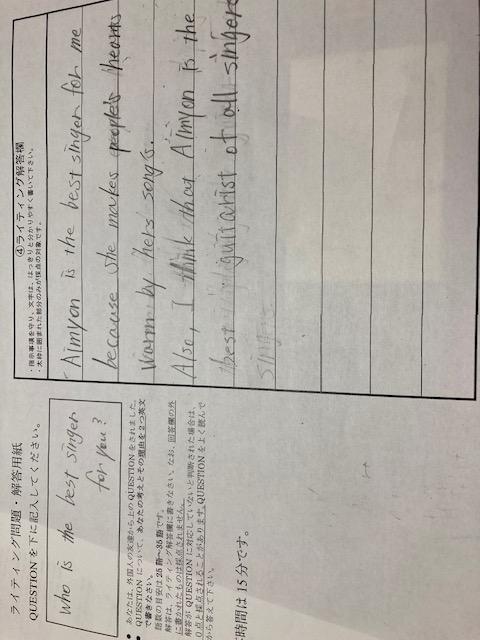 ライティング問題・解答用紙
QUESTION を下に記入してください。
Who is the best singer
for you?
あなたは、外国人の友達から上の QUESTION をされました。
QUESTION について、あなたの考えとその理由を2つ英文
で書きなさい。
語数の目安は 25 語～35 語です。
解答は、ライティング解答欄に書きなさい。なお、回答欄の外
に書かれたものは採点されません。
解答が QUESTION に対応していないと判断された場合は、
0点と採点されることがあります。QUESTION をよく読んで
から答えて下さい。
時間は 15 分です。
④ライティング解答欄
・指示事項を守り、文字は、はっきりと分かりやすく書いて下さい。
・太枠に囲まれた部分のみが採点の対象です。
Aimyon is the best singer for me
because she makes people's hearts
warm by hers songs.
Also, I think that Aimyon is the
best guitarist of all singers